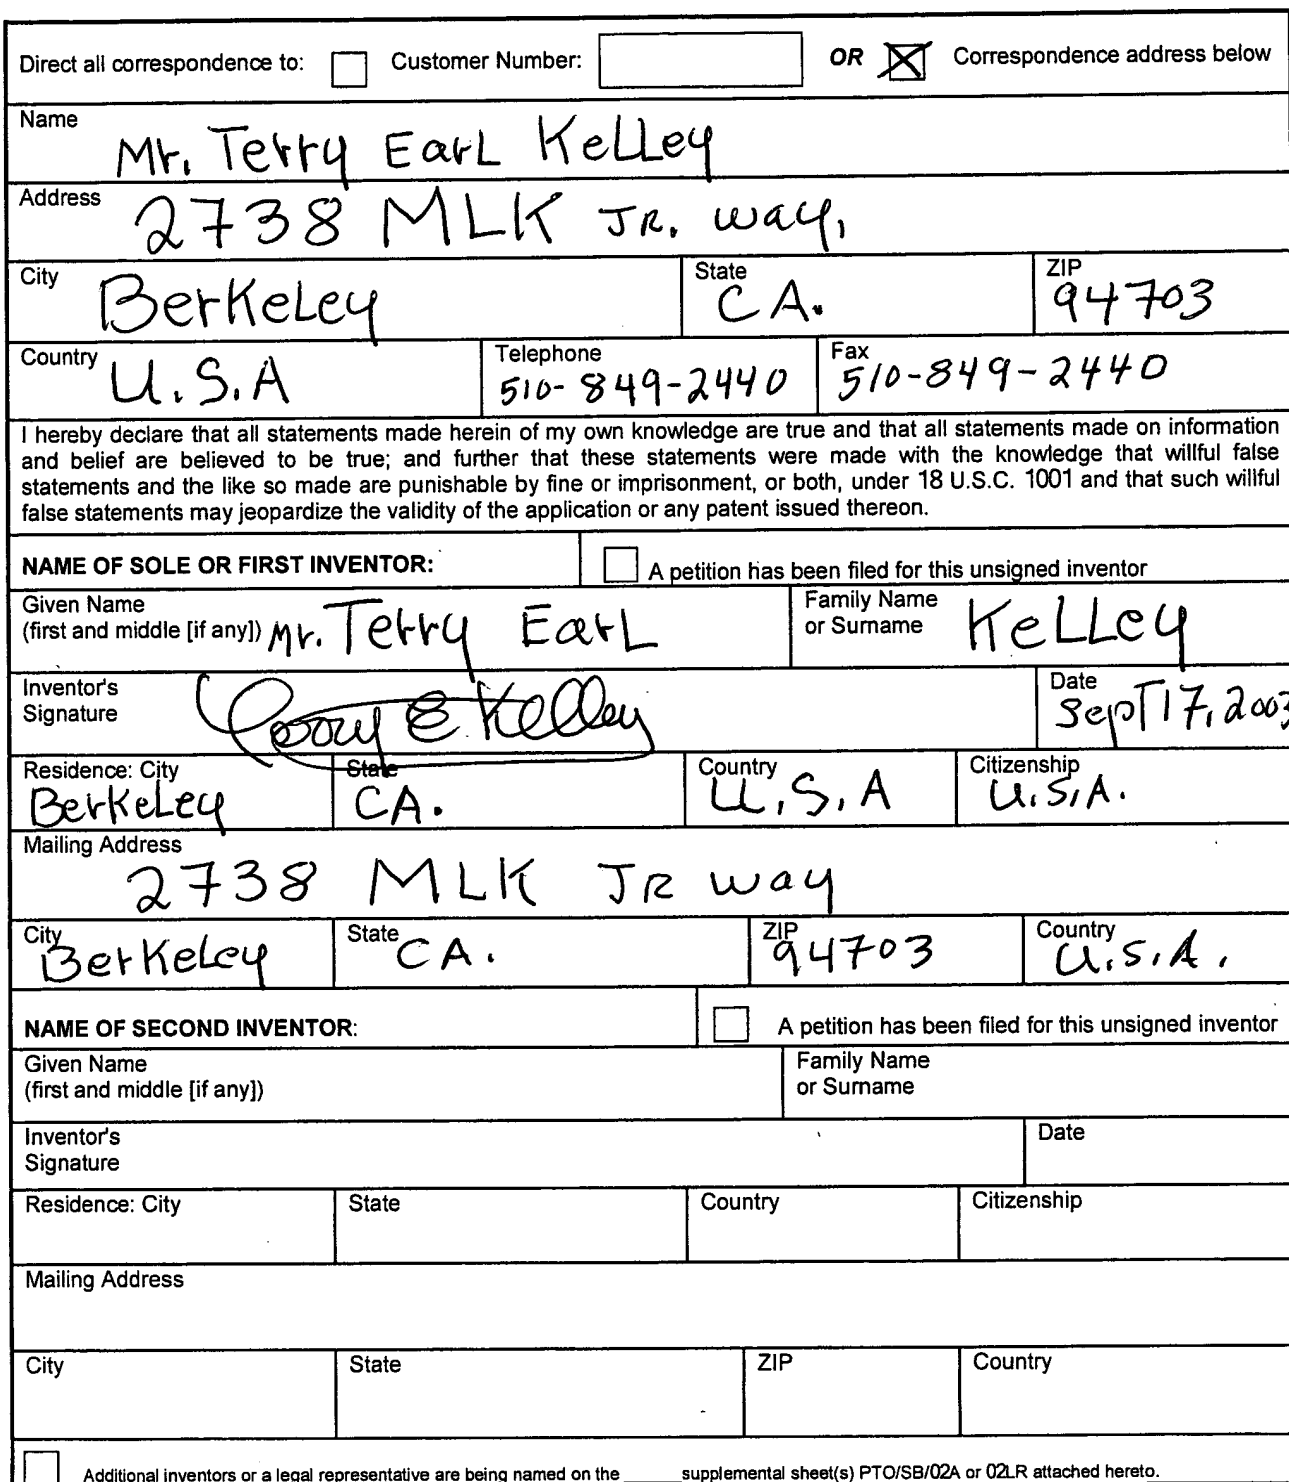 Direct all correspondence to: Customer Number: OR Correspondence address below
Name
Mr. Terry Earl Kelley
Address
2738 MLK JR. way,
City State ZIP
Berkeley CA. 94703
Country Telephone Fax
U.S.A 510-849-2440 510-849-2440
I hereby declare that all statements made herein of my own knowledge are true and that all statements made on information
and belief are believed to be true; and further that these statements were made with the knowledge that willful false
statements and the like so made are punishable by fine or imprisonment, or both, under 18 U.S.C. 1001 and that such willful
false statements may jeopardize the validity of the application or any patent issued thereon.
NAME OF SOLE OR FIRST INVENTOR: A petition has been filed for this unsigned inventor
Given Name Family Name
(first and middle [if any]) Mr. Terry Earl or Surname Kelley
Inventor's Date
Signature Terry E Kelley Sept 17, 2003
Residence: City State Country Citizenship
Berkeley CA. U.S.A U.S.A.
Mailing Address
2738 MLK JR way
City State ZIP Country
Berkeley CA. 94703 U.S.A.
NAME OF SECOND INVENTOR: A petition has been filed for this unsigned inventor
Given Name Family Name
(first and middle [if any]) or Surname
Inventor's Date
Signature
Residence: City State Country Citizenship
Mailing Address
City State ZIP Country
Additional inventors or a legal representative are being named on the ______supplemental sheet(s) PTO/SB/02A or 02LR attached hereto.